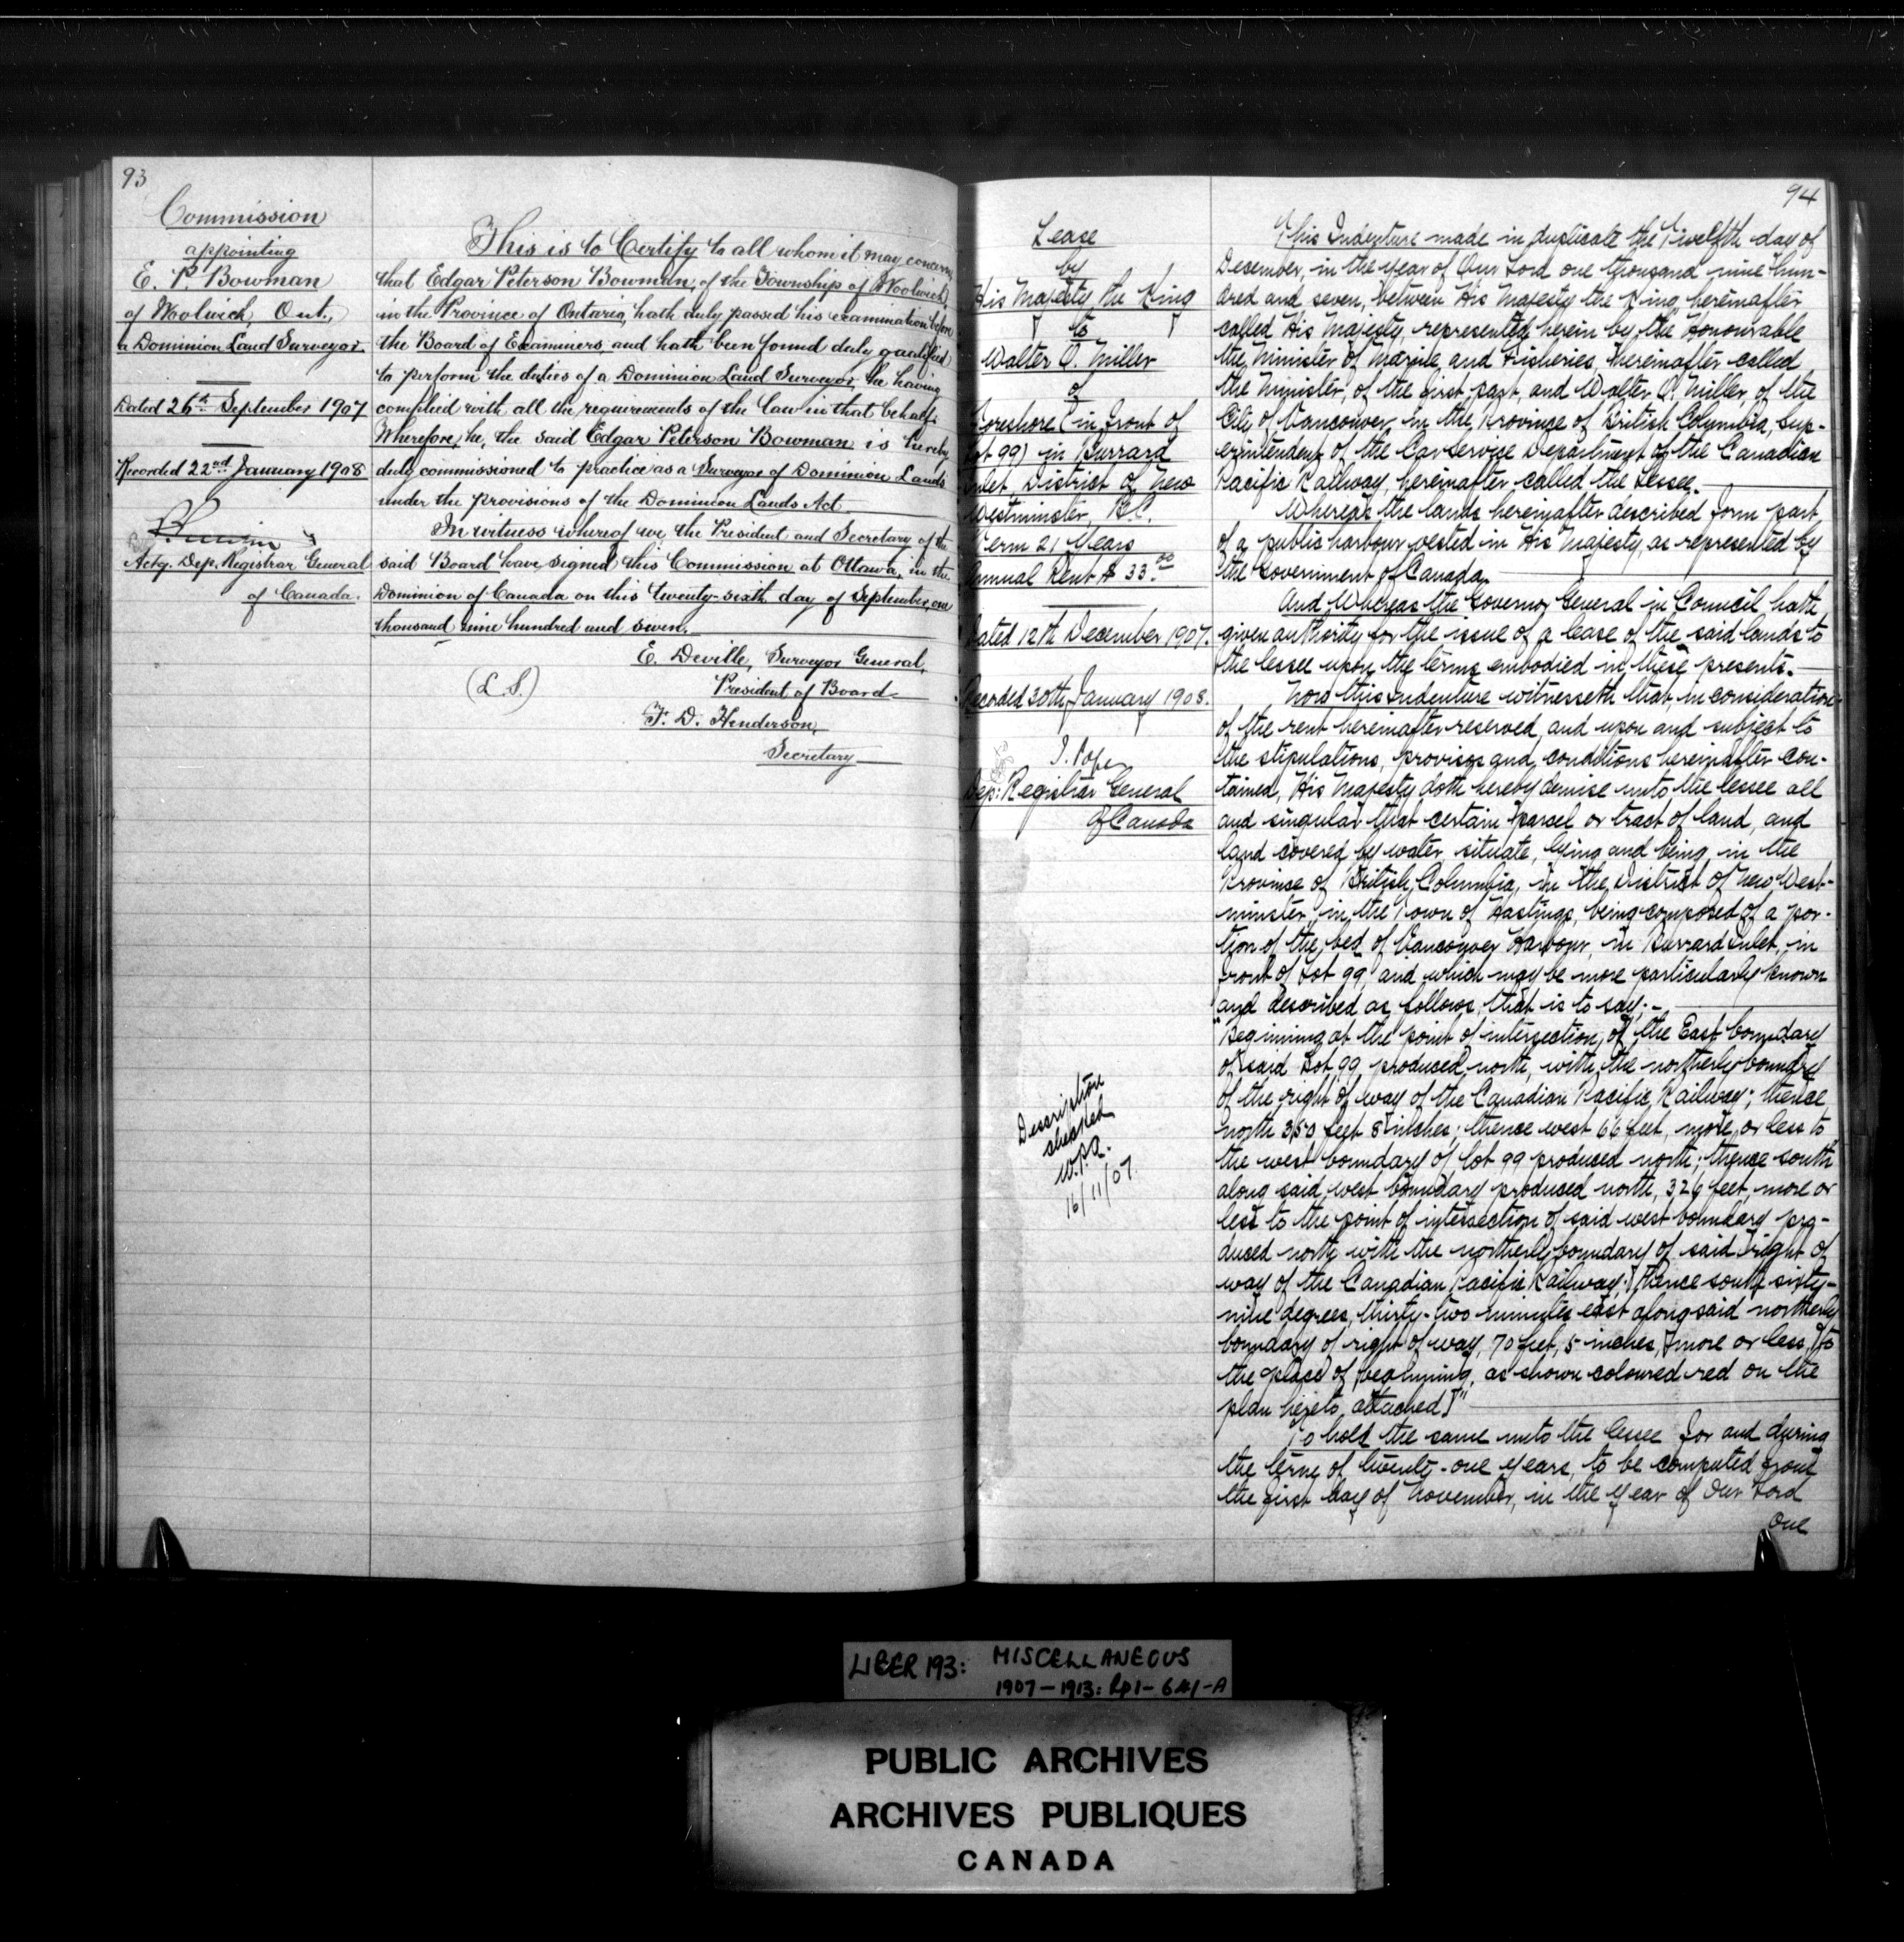 93
Commission
appointing
E. P. Bowman
of Woolwich, Ont.,
a Dominion Land Surveyor.
Dated 26th September 1907
Recorded 22nd January 1908
Actg. Dep. Registrar General
of Canada.
This is to Certify to all whom it may concern
that Edgar Peterson Bowman, of the Township of Woolwich,
in the Province of Ontario, hath duly passed his examination before
the Board of Examiners, and hath been found duly qualified
to perform the duties of a Dominion Land Surveyor, he having
complied with all the requirements of the law in that behalf.
Wherefore, he, the said Edgar Peterson Bowman is hereby
duly commissioned to practice as a Surveyor of Dominion Lands
under the provisions of the Dominion Lands Act
In witness whereof we, the President and Secretary of the
said Board have signed this Commission at Ottawa, in the
Dominion of Canada on this twenty-sixth day of September, one
thousand nine hundred and seven.
E. Deville, Surveyor General,
(L.S.) President of Board
F. D. Henderson,
Secretary
94
Lease
by
His Majesty the King
to
Walter O. Miller
of
Foreshore (in front of
Lot 99) in Burrard
Inlet District of New
Westminster, B.C.
Term 21 Years
Annual Rent $33.00
Dated 12th December 1907.
Recorded 30th January 1908.
J. Pope
Dep: Registrar General
of Canada
Description
checked
16/11/07.
This Indenture made in duplicate the Twelfth day of
December, in the year of Our Lord one thousand nine hun-
dred and seven, between His Majesty the King, hereinafter
called His Majesty, represented herein by the Honourable
the Minister of Marine and Fisheries, hereinafter called
the Minister, of the first part, and Walter O. Miller, of the
City of Vancouver, in the Province of British Columbia, Sup-
erintendent of the Carservice Department of the Canadian
Pacific Railway, hereinafter called the Lessee.
Whereas the lands hereinafter described form part
of a public harbour vested in His Majesty as represented by
the Government of Canada.
And Whereas the Governor General in Council hath
given authority for the issue of a lease of the said lands to
the lessee upon the terms embodied in these presents.
Now this Indenture witnesseth that in consideration
of the rent hereinafter reserved, and upon and subject to
the stipulations, provisos and conditions hereinafter con-
tained, His Majesty doth hereby demise unto the lessee all
and singular that certain parcel or tract of land, and
land covered by water, situate, lying and being, in the
Province of British Columbia, in the District of New West-
minster, in the Town of Hastings, being composed of a por-
tion of the bed of Vancouver Harbour, in Burrard Inlet, in
front of Lot 99, and which may be more particularly known
and described as follows, that is to say:-
"Beginning at the point of intersection of the East boundary
of said Lot 99 produced north, with the northerly boundry
of the right of way of the Canadian Pacific Railway; thence
north 350 feet 8 inches; thence west 66 feet, more or less to
the west boundary of lot 99 produced north; thence south
along said west boundary produced north, 326 feet, more or
less to the point of intersection of said west boundary pro-
duced north with the northerly boundary of said right of
way of the Canadian Pacific Railway; thence south sixty-
nine degrees, thirty-two minutes east along said northerly
boundary of right of way, 70 feet, 5 inches, more or less, to
the place of beginning, as shown coloured red on the
plan hereto attached"
To hold the same unto the lessee for and during
the term of twenty-one years, to be computed from
the first day of November, in the year of Our Lord
one
LIBER 193: MISCELLANEOUS
1907-1913: pp 1-641-A
PUBLIC ARCHIVES
ARCHIVES PUBLIQUES
CANADA